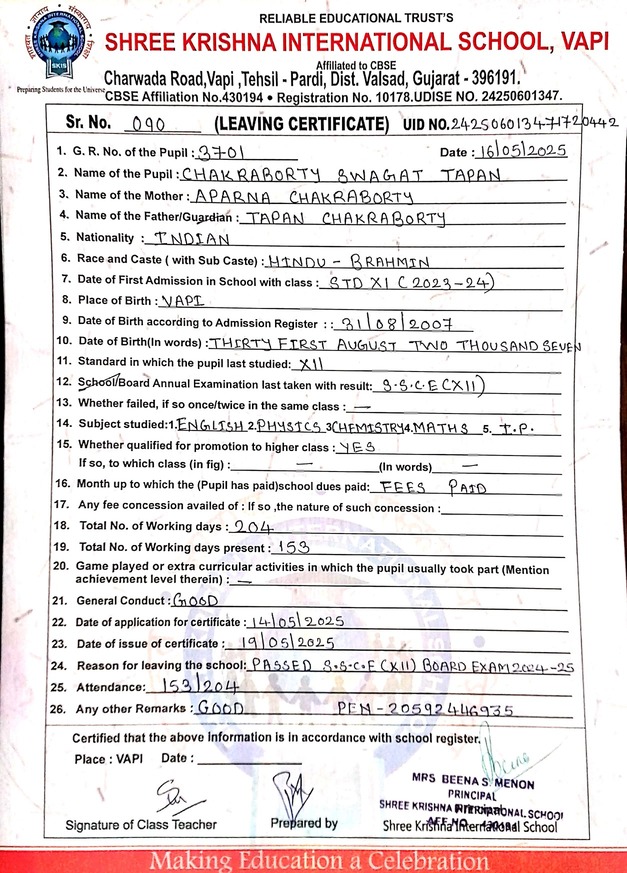 RELIABLE EDUCATIONAL TRUST'S
SHREE KRISHNA INTERNATIONAL SCHOOL, VAPI
Affiliated to CBSE
Charwada Road,Vapi ,Tehsil - Pardi, Dist. Valsad, Gujarat - 396191.
CBSE Affiliation No.430194 • Registration No. 10178.UDISE NO. 24250601347.
SKIS
Preparing Students for the Universe
Sr. No. 090 (LEAVING CERTIFICATE) UID NO.242506013471720442
1. G. R. No. of the Pupil : 3701 Date : 16/05/2025
2. Name of the Pupil : CHAKRABORTY SWAGAT TAPAN
3. Name of the Mother : APARNA CHAKRABORTY
4. Name of the Father/Guardian : TAPAN CHAKRABORTY
5. Nationality : INDIAN
6. Race and Caste ( with Sub Caste) : HINDU - BRAHMIN
7. Date of First Admission in School with class : STD XI (2023-24)
8. Place of Birth : VAPI
9. Date of Birth according to Admission Register : : 31/08/2007
10. Date of Birth(In words) : THIRTY FIRST AUGUST TWO THOUSAND SEVEN
11. Standard in which the pupil last studied: XII
12. School/Board Annual Examination last taken with result: S.S.C.E(XII)
13. Whether failed, if so once/twice in the same class : —
14. Subject studied:1.ENGLISH 2.PHYSICS 3CHEMISTRY4.MATHS 5. I.P.
15. Whether qualified for promotion to higher class : YES
If so, to which class (in fig) : — (In words) —
16. Month up to which the (Pupil has paid)school dues paid: FEES PAID
17. Any fee concession availed of : If so ,the nature of such concession :
18. Total No. of Working days : 204
19. Total No. of Working days present : 153
20. Game played or extra curricular activities in which the pupil usually took part (Mention
achievement level therein) : —
21. General Conduct : GOOD
22. Date of application for certificate : 14/05/2025
23. Date of issue of certificate : 19/05/2025
24. Reason for leaving the school: PASSED S.S.C.E (XII) BOARD EXAM 2024-25
25. Attendance: 153/204
26. Any other Remarks : GOOD PEN-20592446935
Certified that the above Information is in accordance with school register.
Place : VAPI Date :
MRS BEENA S. MENON
PRINCIPAL
SHREE KRISHNA INTERNATIONAL SCHOOL
Signature of Class Teacher Prepared by Shree Krishna International School
Making Education a Celebration